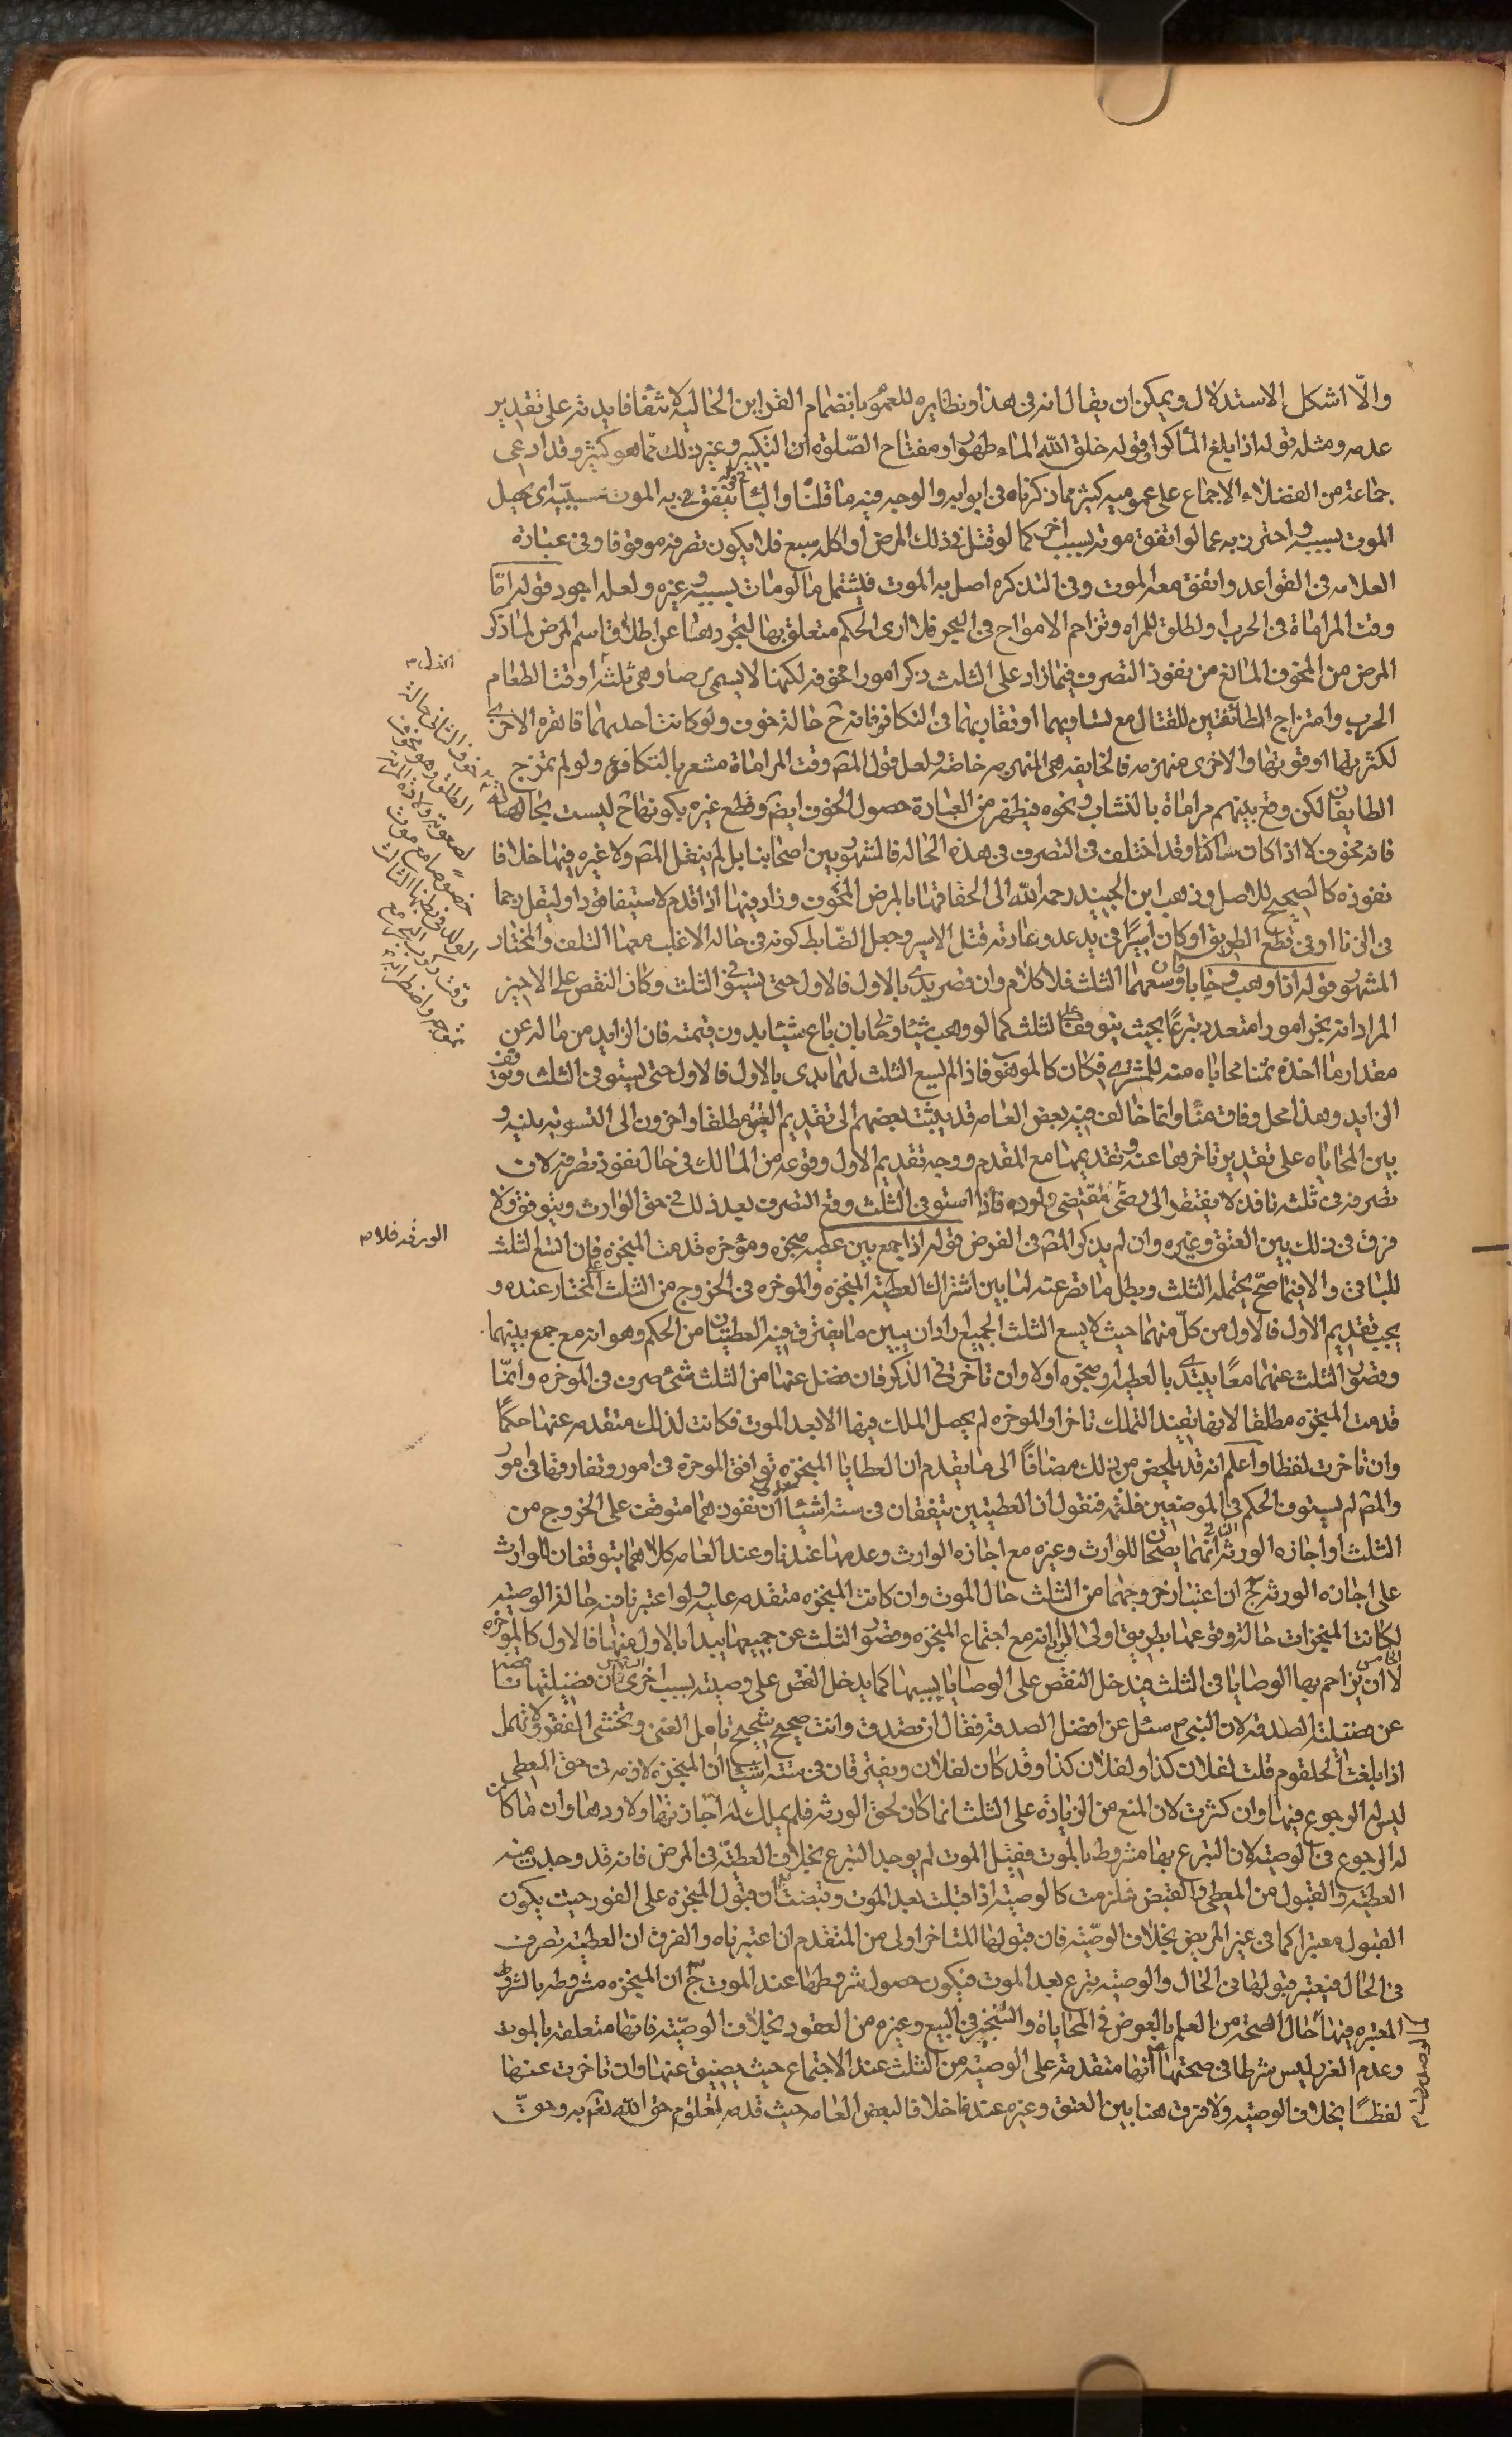 والّا اشكل الاستدلال ويمكن ان يقال انه فى هذا ونظايره للعموم بانضمام القراين الحالية لانتفا فايدته على تقدير
عدمه ومثله قوله اذا بلغ الماكرا وقوله خلق الله الماء طهورا ومفتاح الصّلوة التكبير وغير ذلك مما هو كثير وقد ادعى
جماعة من الفضلاء الاجماع على عموميه كثير مما ذكرناه فى ابوابه والوجه فيه ما قلناه والبا فى قوله يتفق به الموت سببيّه اى يحصل
الموت بسببه واحترز به عما لو اتفق موته بسبب اخر كما لو قتل فى ذلك المرض او اكله سبع فلا يكون تصرفه موقوفا وفى عبارة
العلامه فى القواعد واتفق معه الموت وفى التذكره اصل به الموت فيشمل ما لو مات بسببه وغيره ولعله اجود قوله امّا
وقت المراماة فى الحرب او لطلق للمراه وتزاحم الامواج فى البحر فلا ارى الحكم متعلق بها لتجردها عن اطلاق اسم المرض لما ذكر
المرض من المخوف المانع من نفوذ التصرف فيما زاد على الثلث ذكر امورا مخوفه لكنها لا يسمى مرضا وهى ثلثه او وقت الطعام
الحرب وامتزاج الطائفتين للقتال مع تساويهما او تقاربهما فى التكافؤ فانه ح حالة خوف ولو كانت احديهما قاهره الاخرى
لكثرتها او قوتها والاخرى منهزمه فالخايفه هى المنهزمه خاصه ولعل قول المصه وقت المراماة مشعر بالتكافؤ ولو لم تمتزج
الطايفتان لكن وقع بينهم مراماة بالنشاب ونحوه فيظهر من العبارة حصول الخوف ايضه وقطع غيره بكونها ح ليست بحالها
فانه مخوف لا اذا كان ساكنا وقد اختلف فى التصرف فى هذه الحاله فالمشهور بين اصحابنا بل لم ينقل المصه ولا غيره فيها خلافا
نفوذه كالصحيح للاصل وذهب ابن الجنيد رحمه الله الى الحاقها بالمرض المخوف وزاد فيها اذا قدم لاستيفا قود او ليقتل رجما
فى الزنا او فى قطع الطريق او كان اسيرًا فى يد عدو عادته قتل الاسير وجعل الضابط كونه فى حاله الاغلب معها التلف والمختار
المشهور قوله اذا وهب وحابا فان وسعهما الثلث فلا كلام وان قصر يدى بالاول فالاول حتى يستوفى الثلث وكان النقص على الاخير
المراد انه نجز امورا متعدده تبرعًا بحيث يتوقف على الثلث كما لو وهب شيئا وحابا بان باع شيئا بدون قيمته فان الزايد من ماله عن
مقدار ما اخذه ثمنا محاباه منه للمشترى فكان كالموهوب فاذا لم يسع الثلث لهما بدى بالاول فالاول حتى يستوفى الثلث وتوقف
الزايد وهذا محل وفاق منّا وانما خالف فيه بعض العامه قد يثبت بعضهم الى تقديم العتق مطلقا واخرون الى التسويه بينه و
بين المحاباه على تقدير تاخرها عنه وتقديمها مع المقدم ووجه تقديم الاول وقوعه من المالك فى حال نفوذ تصرفه لان
تصرفه فى ثلثه نافذ لا يفتقر الى رضى فاذا استوفى الثلث وقع التصرف بعد ذلك فى حق الوارث ويتوقف ولا
فرق فى ذلك بين العتق وغيره وان لم يذكر المصه فى الفرض قوله اذا جمع بين عطيه منجزه ومؤخره قدمت المنجزه فان اتسع الثلث
للباقى والا فيما صحّ يحتمله الثلث وبطل ما قصر عنه لما بين اشتراك العطيه المنجزه والموخره فى الخروج من الثلث على المختار عنده و
يجب تقديم الاول فالاول من كلّ منهما حيث لا يسع الثلث الجميع اراد ان يبين ما يفترق فيه العطيتان من الحكم وهو انه مع جمع بينهما
وقصور الثلث عنهما معًا يبتدى بالعطيه المنجزه اولا وان تاخرت فى الذكر فان فضل عنها من الثلث شئ صرف فى الموخره وانمّا
قدمت المنجزه مطلقا لانها تفيد التملك ناجزا والموخره لم يحصل الملك فيها الا بعد الموت فكانت لذلك متقدمه عنها حكمًا
وان تاخرت لفظا واعلم انه قد يلخص من ذلك مضافًا الى ما تقدم ان العطايا المنجزه توافق الموخرة فى امور وتفارقها فى امور
والمصه لم يستوف الحكم فى الموضعين فلنتمه فنقول ان العطيتين يتفقان فى سته اشيئا ان نفوذهما متوقف على الخروج من
الثلث او اجازه الورثه الثانى انهما يصحان للوارث وغيره مع اجازه الوارث وعدمها عندنا وعند العامه كلاهما يتوقفان للوارث
على اجازه الورثه ج ان اعتبار خروجهما من الثلث حال الموت وان كانت المنجزه متقدمه عليه ولو اعتبرنا فيه حاله الوصيه
لكانت المنجزات حالة وقوعها بطريق اولى الرابع انه مع اجتماع المنجزه وقصور الثلث عن جميعها يبدا بالاول منها فالاول كالموخره
الخامس ان يزاحم بها الوصايا فى الثلث فيدخل النقص على الوصايا بسببها كما يدخل النقص على وصيته بسبب اخرى السادس ان فضيلتها ناقصه
عن فضيلة الصدقه لان النبى ص سئل عن افضل الصدقة فقال ان تصدق وانت صحيح شحيح تامل الغنى وتخشى الفقر ولا تمهل
اذا بلغت الحلقوم قلت لفلان كذا ولفلان كذا وقد كان لفلان ويفترقان فى سته اشيئا ا ان المنجزه لازمه فى حق المعطى
ليس له الرجوع فيها وان كثرت لان المنع من الزيادة على الثلث انما كان لحق الورثه فلم يملك اجازتها ولا ردها وان ما كان
له الرجوع فى الوصيه لان التبرع بها مشروط بالموت فقبل الموت لم يوجد التبرع بخلاف العطيّه فى المرض فانه قد وجدت منه
العطيه والقبول من المعطى والقبض فلزمت كالوصيه اذا قبلت بعد الموت وقبضت ب ان قبول المنجزه على الفور حيث يكون
القبول معتبرا كما فى غير المريض بخلاف الوصيّه فان قبولها المتاخر اولى من المتقدم ان اعتبرناه والفرق ان العطيه تصرف
فى الحال فيعتبر قبولها فى الحال والوصيه تبرع بعد الموت فيكون حصول شروطها عند الموت ج ان المنجزه مشروطه بالشروط
المعتبره فيها حال الصحه من العلم بالعوض فى المحاباة والتنجيز فى البيع وغيره من العقود بخلاف الوصيّه فانها متعلقه بالموت
وعدم الغرر ليس شرطا فى صحتها د انها متقدمه على الوصيّه من الثلث عند الاجتماع حيث يضيق عنها وان تاخرت عنها
لفظًا بخلاف الوصيه ولا فرق هنا بين العتق وغيره عندنا خلافا لبعض العامه حيث قدمه لتعلق حق الله تعه به وحق
الورثه فلا